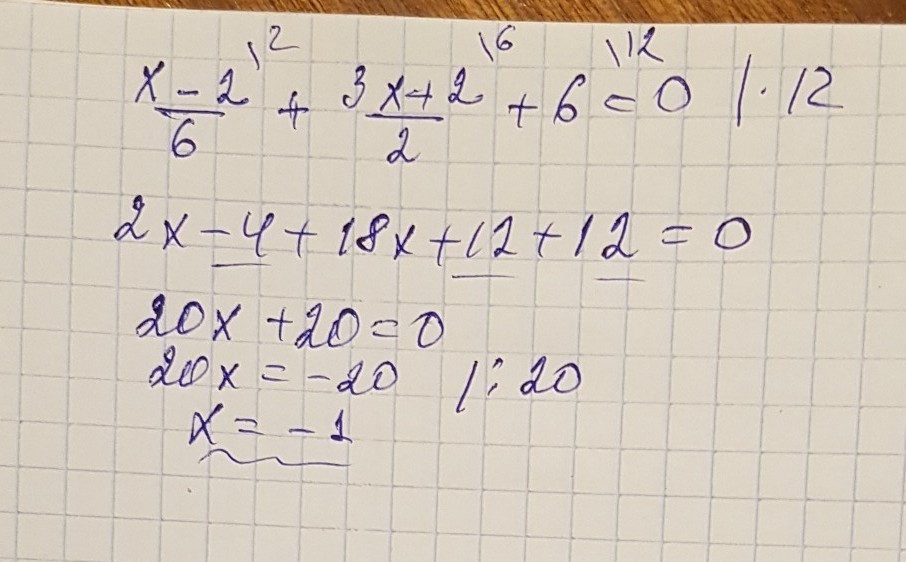 \2 \6 \12
x-2/6 + 3x+2/2 + 6 = 0 | · 12
2x - 4 + 18x + 12 + 12 = 0
20x + 20 = 0
20x = -20 | : 20
x = -1